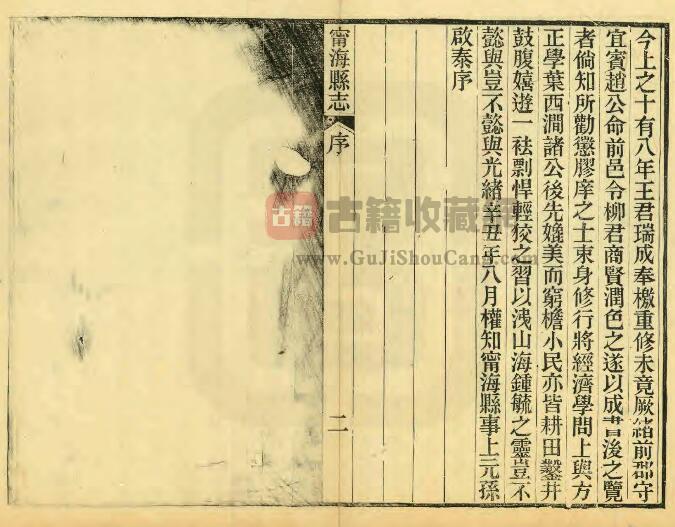 今上之十有八年王君瑞成奉檄重修未竟厥緒前郡守
宜賓趙公命前邑令柳君商賢潤色之遂以成書後之覽
者倘知所勸懲膠庠之士束身修行將經濟學問上與方
正學葉西澗諸公後先媲美而窮檐小民亦皆耕田鑿井
鼓腹嬉遊一祛剽悍輕狡之習以洩山海鍾毓之靈豈不
懿與豈不懿與光緒辛丑年八月權知甯海縣事上元孫
啟泰序
甯海縣志
序
二
古籍
古籍收藏
www.GuJiShouCang.com